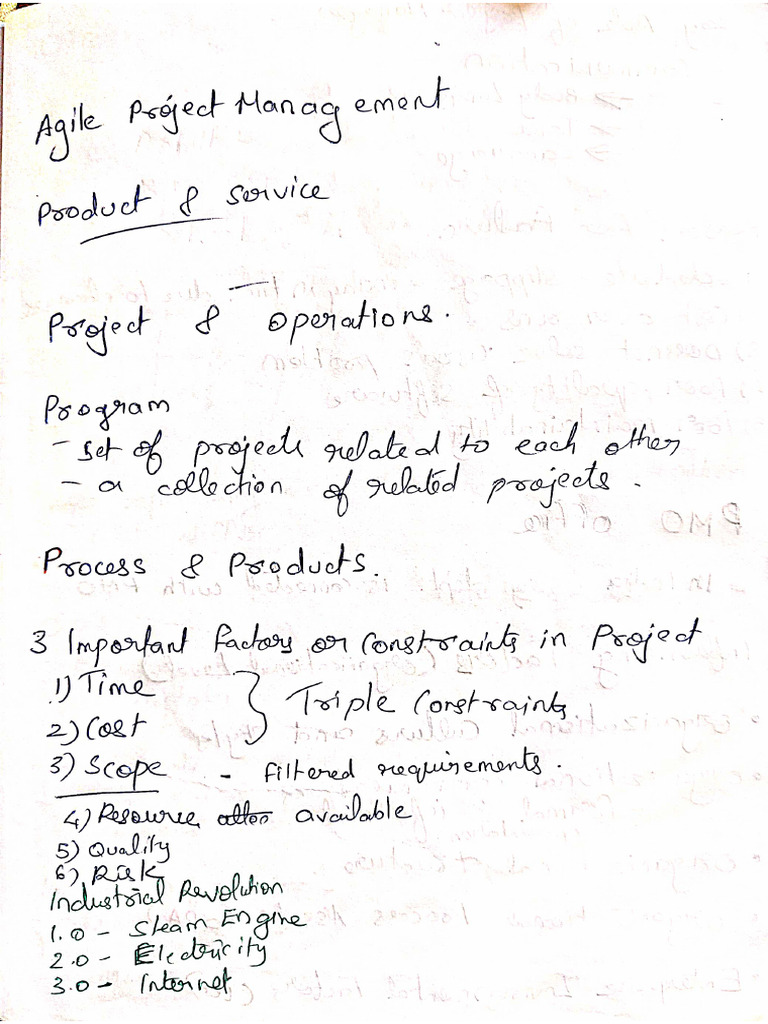 Agile Project Management
Product & Service
Project & Operations.
Program
- set of projects related to each other
- a collection of related projects.
Process & Products.
3 Important factors or constraints in Project
1) Time
2) Cost
Triple Constraints
3) Scope - filtered requirements.
4) Resource available
5) Quality
6) Risk
Industrial Revolution
1.0 - Steam Engine
2.0 - Electricity
3.0 - Internet